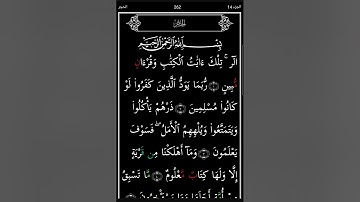 الجزء ١٤ 262 الحجر
بِسْمِ ٱللَّهِ ٱلرَّحْمَٰنِ ٱلرَّحِيمِ
الٓر ۚ تِلْكَ ءَايَٰتُ ٱلْكِتَٰبِ وَقُرْءَانٍ
مُّبِينٍ ۝١ رُّبَمَا يَوَدُّ ٱلَّذِينَ كَفَرُوا۟ لَوْ
كَانُوا۟ مُسْلِمِينَ ۝٢ ذَرْهُمْ يَأْكُلُوا۟
وَيَتَمَتَّعُوا۟ وَيُلْهِهِمُ ٱلْأَمَلُ ۖ فَسَوْفَ
يَعْلَمُونَ ۝٣ وَمَآ أَهْلَكْنَا مِن قَرْيَةٍ
إِلَّا وَلَهَا كِتَابٌ مَّعْلُومٌ ۝٤ مَّا تَسْبِقُ
مِنْ أُمَّةٍ أَجَلَهَا وَمَا يَسْتَـْٔخِرُونَ ۝٥